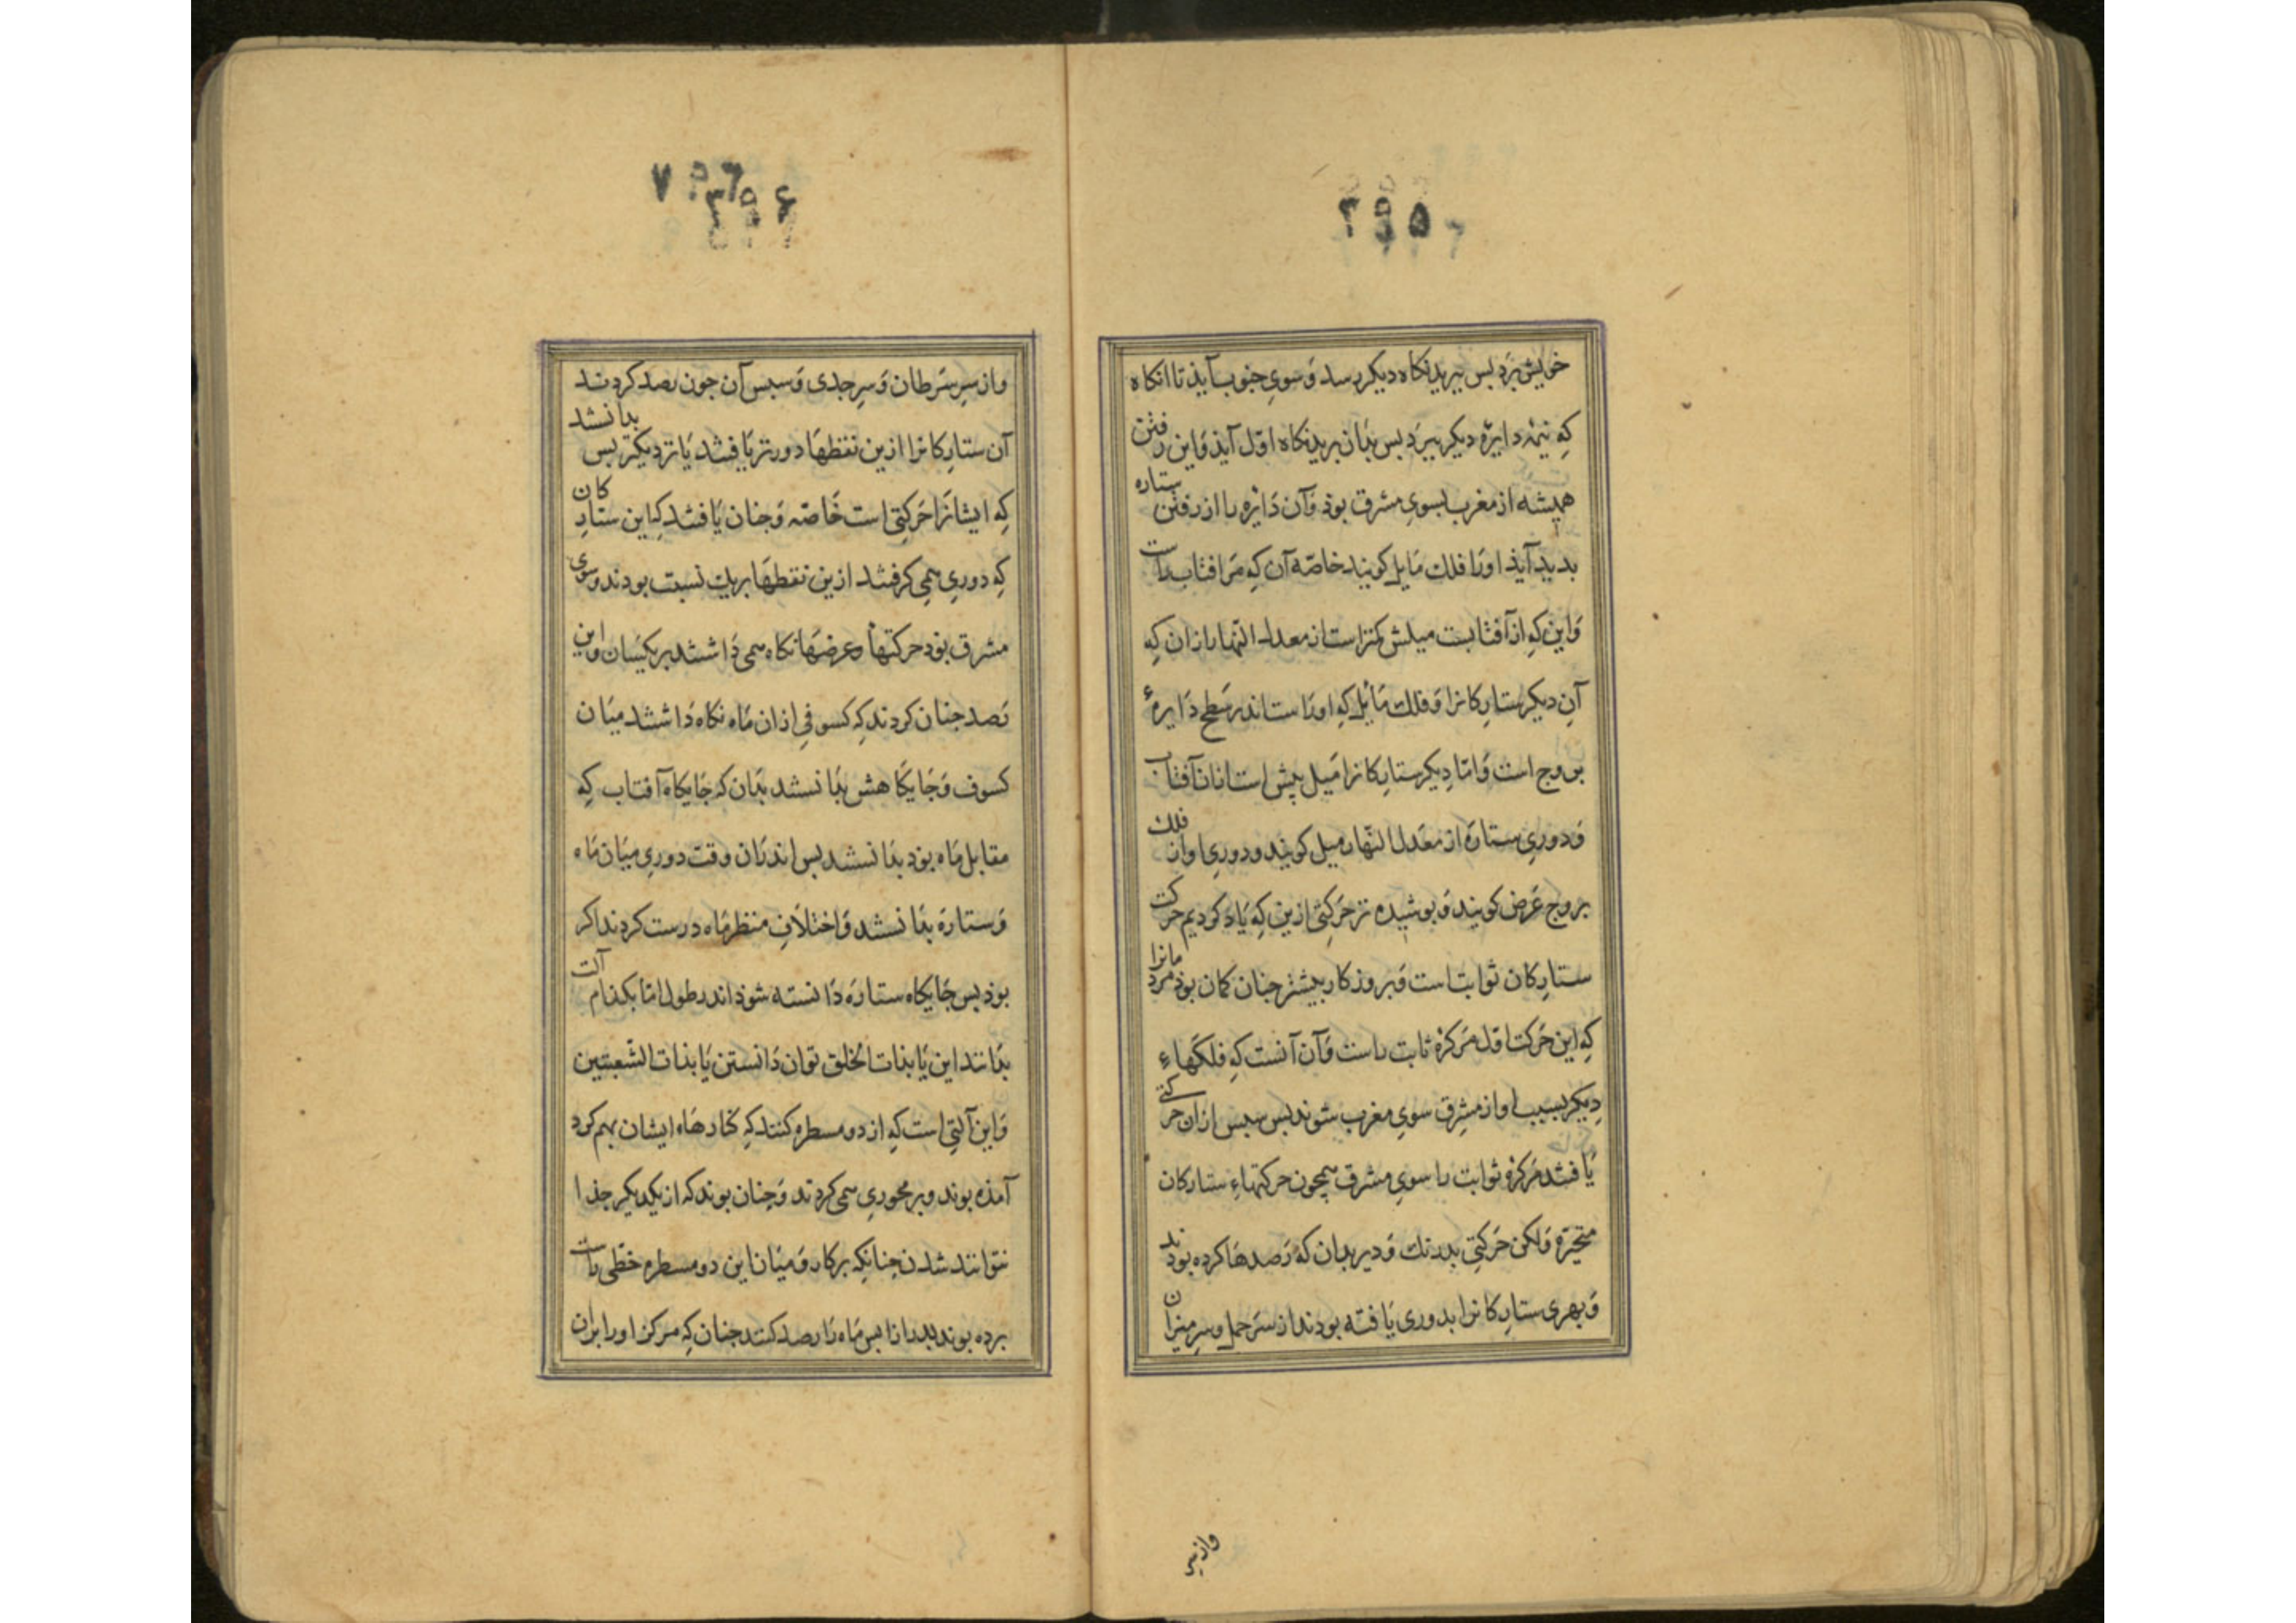 ۲۹۵
خویش بَرَد بس ببریدنکاه دیکر رسد وَ سویِ جنوب آیذ تا انکاه
کِه نیمهٔ دایرهٔ دیکر ببرَد بس بذان بریدنکاه اوّل آیذ وَاین رفتن
همیشه از مغرب بسویِ مشرق بوذ وَآن دَایْره را از رفتن ستاره
بدید آیذ او رَا فلك مَایِل کویند خاصّه آن کِه مَر افتاب راست
وَاین کِه از آفتابست میلش کمتر است از معدل النّهار از ان کِه
آنِ دیکر ستارِکانرا وَ فلك مَایْل کِه او رَاست اندر سَطحِ دَایرهٔ
بروج است وَامّا دیکر ستارِکانرا مَیل بیش است از ان آفتاب
وَ دوریِ ستارَه از معَدل النّهار میل کویند و دوریِ او از فلك
بروج عَرض کویند وَ بوشیده تر حَرکتِی ازین کِه یَاد کردیم حرکت
ستارِکان ثوابت است وَ بروزکار بیشتر جنان کمان بوذ مردمانرا
کِه این حَرکت اوّل مَر کُرهٔ ثابت راست وَآن آنست کِه فلکهاءِ
دِیکر بسبب او از مشرِق سویِ مغرب شوند بس سبس از ان حرکتی
یَافتند مَر کرهٔ ثوابت را سویِ مشرق همجون حرکتهاءِ ستارکان
متحیّرَة وَلکن حَرکتِی بدرنك وَ دیر بدان که رَصدهَا کرده بودند
وَ بهری ستارِکانرا بدوری یَافته بودند از سَر حمل و سرِ میزان
واز سر
۲۹۶
واز سِرِ سَرطان وَ سرِ جدی وَ سبس آن جون رصد کردند
آن ستارِکانرا ازین نقطهَا دورتر یَافتند یَا نزدیکتر بس بدانستند
کِه ایشانرَا حَرکتِی است خَاصّه وَ جنان یَافتند کِه این ستارِکان
کِه دوریِ همی کرفتند ازین نقطهَا بر یك نسبت بودند و سوی
مشرق بوَد حرکتهَا و عرضهَا نکاه همی دَاشتند بر یکسَان و این
رَصد جنان کردند کِه کسوفی از ان مَاه نکاه دَاشتند میَان
کسوف وَ جَایکاهش بدَانستند بدَان که جَایکاه آفتاب کِه
مقابل مَاه بوَد بدَانستند بس اندرَان وقت دوریِ میَان مَاه
وَ ستارَه بدَانستند وَ اختلافِ منظر مَاه درست کردند اکر
بوذ بس جَایکاه ستارَه دَانسته شوذ اندر طول امّا بکذام آلت
بدَانند این یَا بذات الحلق توان دَانستن یَا بذات الشّعبتین
وَ این آلتِی است کِه از دو مسطره کنند کِه کنارهَاء ایشان بهم کرد
آمذه بوند و بر محوریِ همی کردند وَ جنان بوند که از یکدیکر جذا
نتوانند شدن جنانکِه برکار وَ میَان این دو مسطره خطّی راست
برده بوند بدرازا بس مَاه رَا رصد کنند جنان کِه مرکز او را بر ان